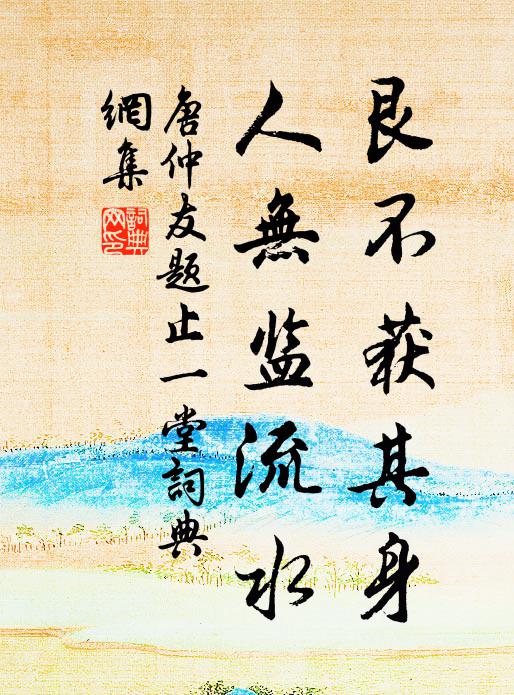 艮不获其身
人無监流水
唐仲友题止一堂詞典
網集
詞典網印